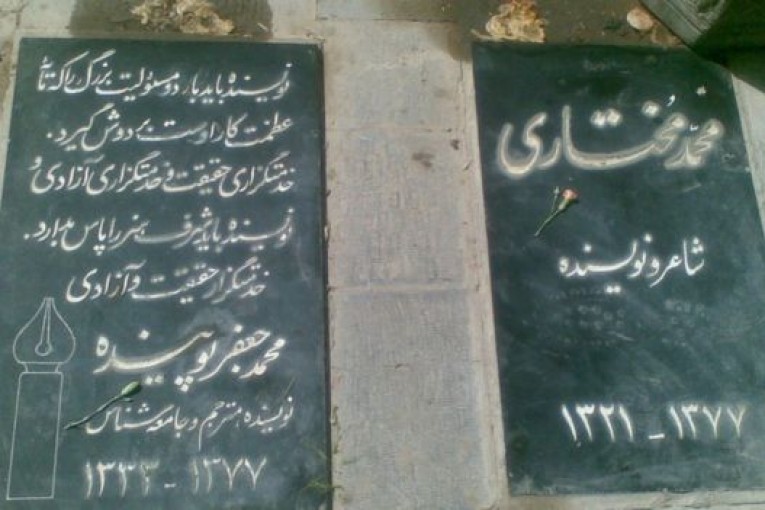 محمّد مُختاری
شاعر و نویسنده
۱۳۲۱ - ۱۳۷۷
نویسنده باید بار دو مسئولیت بزرگ را که
عظمت کار اوست بر دوش گیرد.
خدمتگزاری حقیقت و خدمتگزاری آزادی و
نویسنده باید شرف هنر را پاس بدارد.
خدمتگزار حقیقت و آزادی
محمد جعفر پوینده
نویسنده، مترجم و جامعه شناس
۱۳۳۳ - ۱۳۷۷